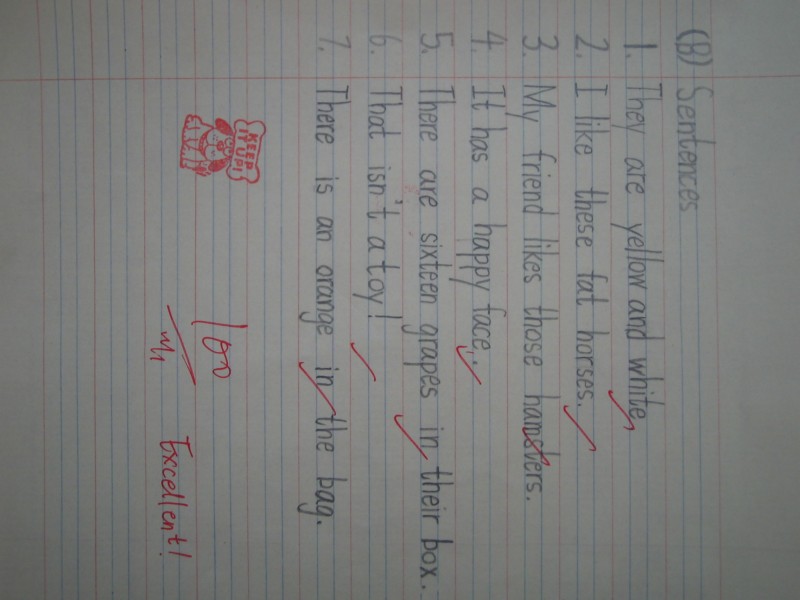 (B) Sentences
1. They are yellow and white.
2. I like these fat horses.
3. My friend likes those hamsters.
4. It has a happy face.
5. There are sixteen grapes in their box.
6. That isn't a toy!
7. There is an orange in the bag.
KEEP
IT UP!
100
Excellent!